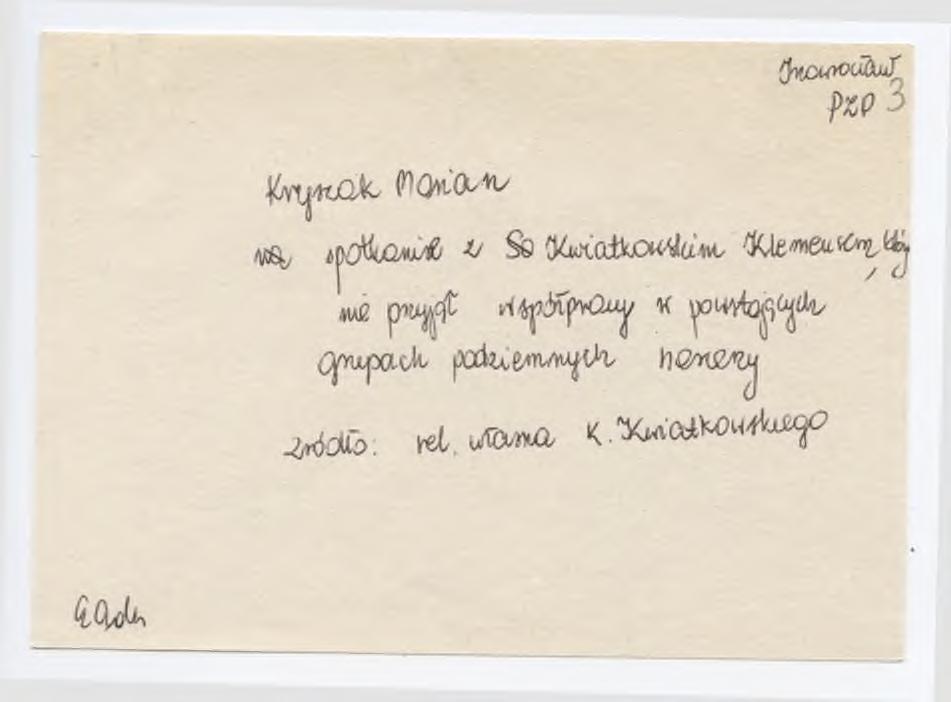 Inowrocław
PZP 3
Kryszak Marian
na spotkanie z Kwiatkowskim Klemensem, który
nie przyjął współpracy w powstających
grupach podziemnych harcerzy
źródło: rel. własna K. Kwiatkowskiego